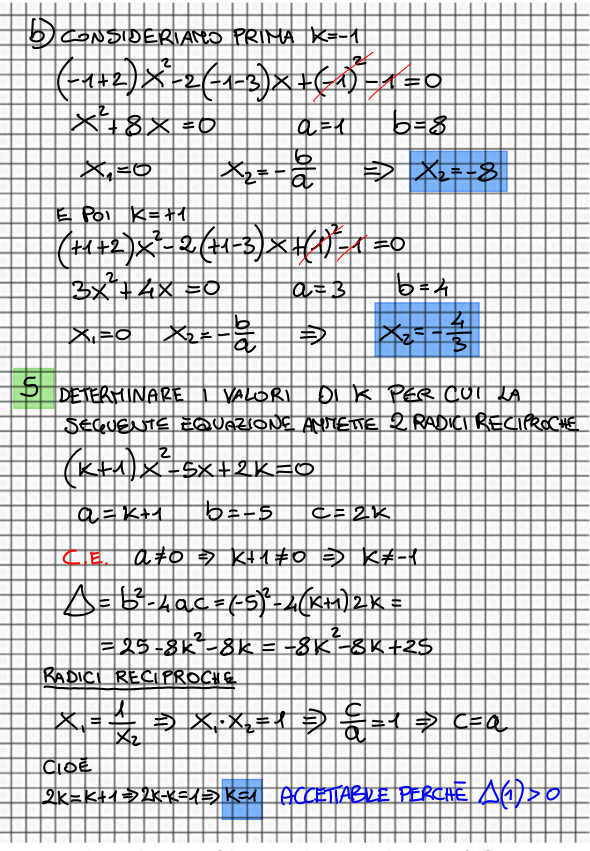 b) CONSIDERIAMO PRIMA K=-1
(-1+2)x²-2(-1-3)x+(-1)²-1=0
x²+8x=0 a=1 b=8
x₁=0 x₂=-b/a ⇒ x₂=-8
E POI K=+1
(+1+2)x²-2(+1-3)x+(1)²-1=0
3x²+4x=0 a=3 b=4
x₁=0 x₂=-b/a ⇒ x₂=-4/3
5 DETERMINARE I VALORI DI K PER CUI LA
SEGUENTE EQUAZIONE AMMETTE 2 RADICI RECIPROCHE
(K+1)x²-5x+2K=0
a=K+1 b=-5 c=2K
C.E. a≠0 ⇒ K+1≠0 ⇒ K≠-1
Δ=b²-4ac=(-5)²-4(K+1)2K=
=25-8K²-8K=-8K²-8K+25
RADICI RECIPROCHE
x₁=1/x₂ ⇒ x₁·x₂=1 ⇒ c/a=1 ⇒ c=a
CIOÈ
2K=K+1⇒2K-K=1⇒K=1 ACCETTABILE PERCHÈ Δ(1)>0